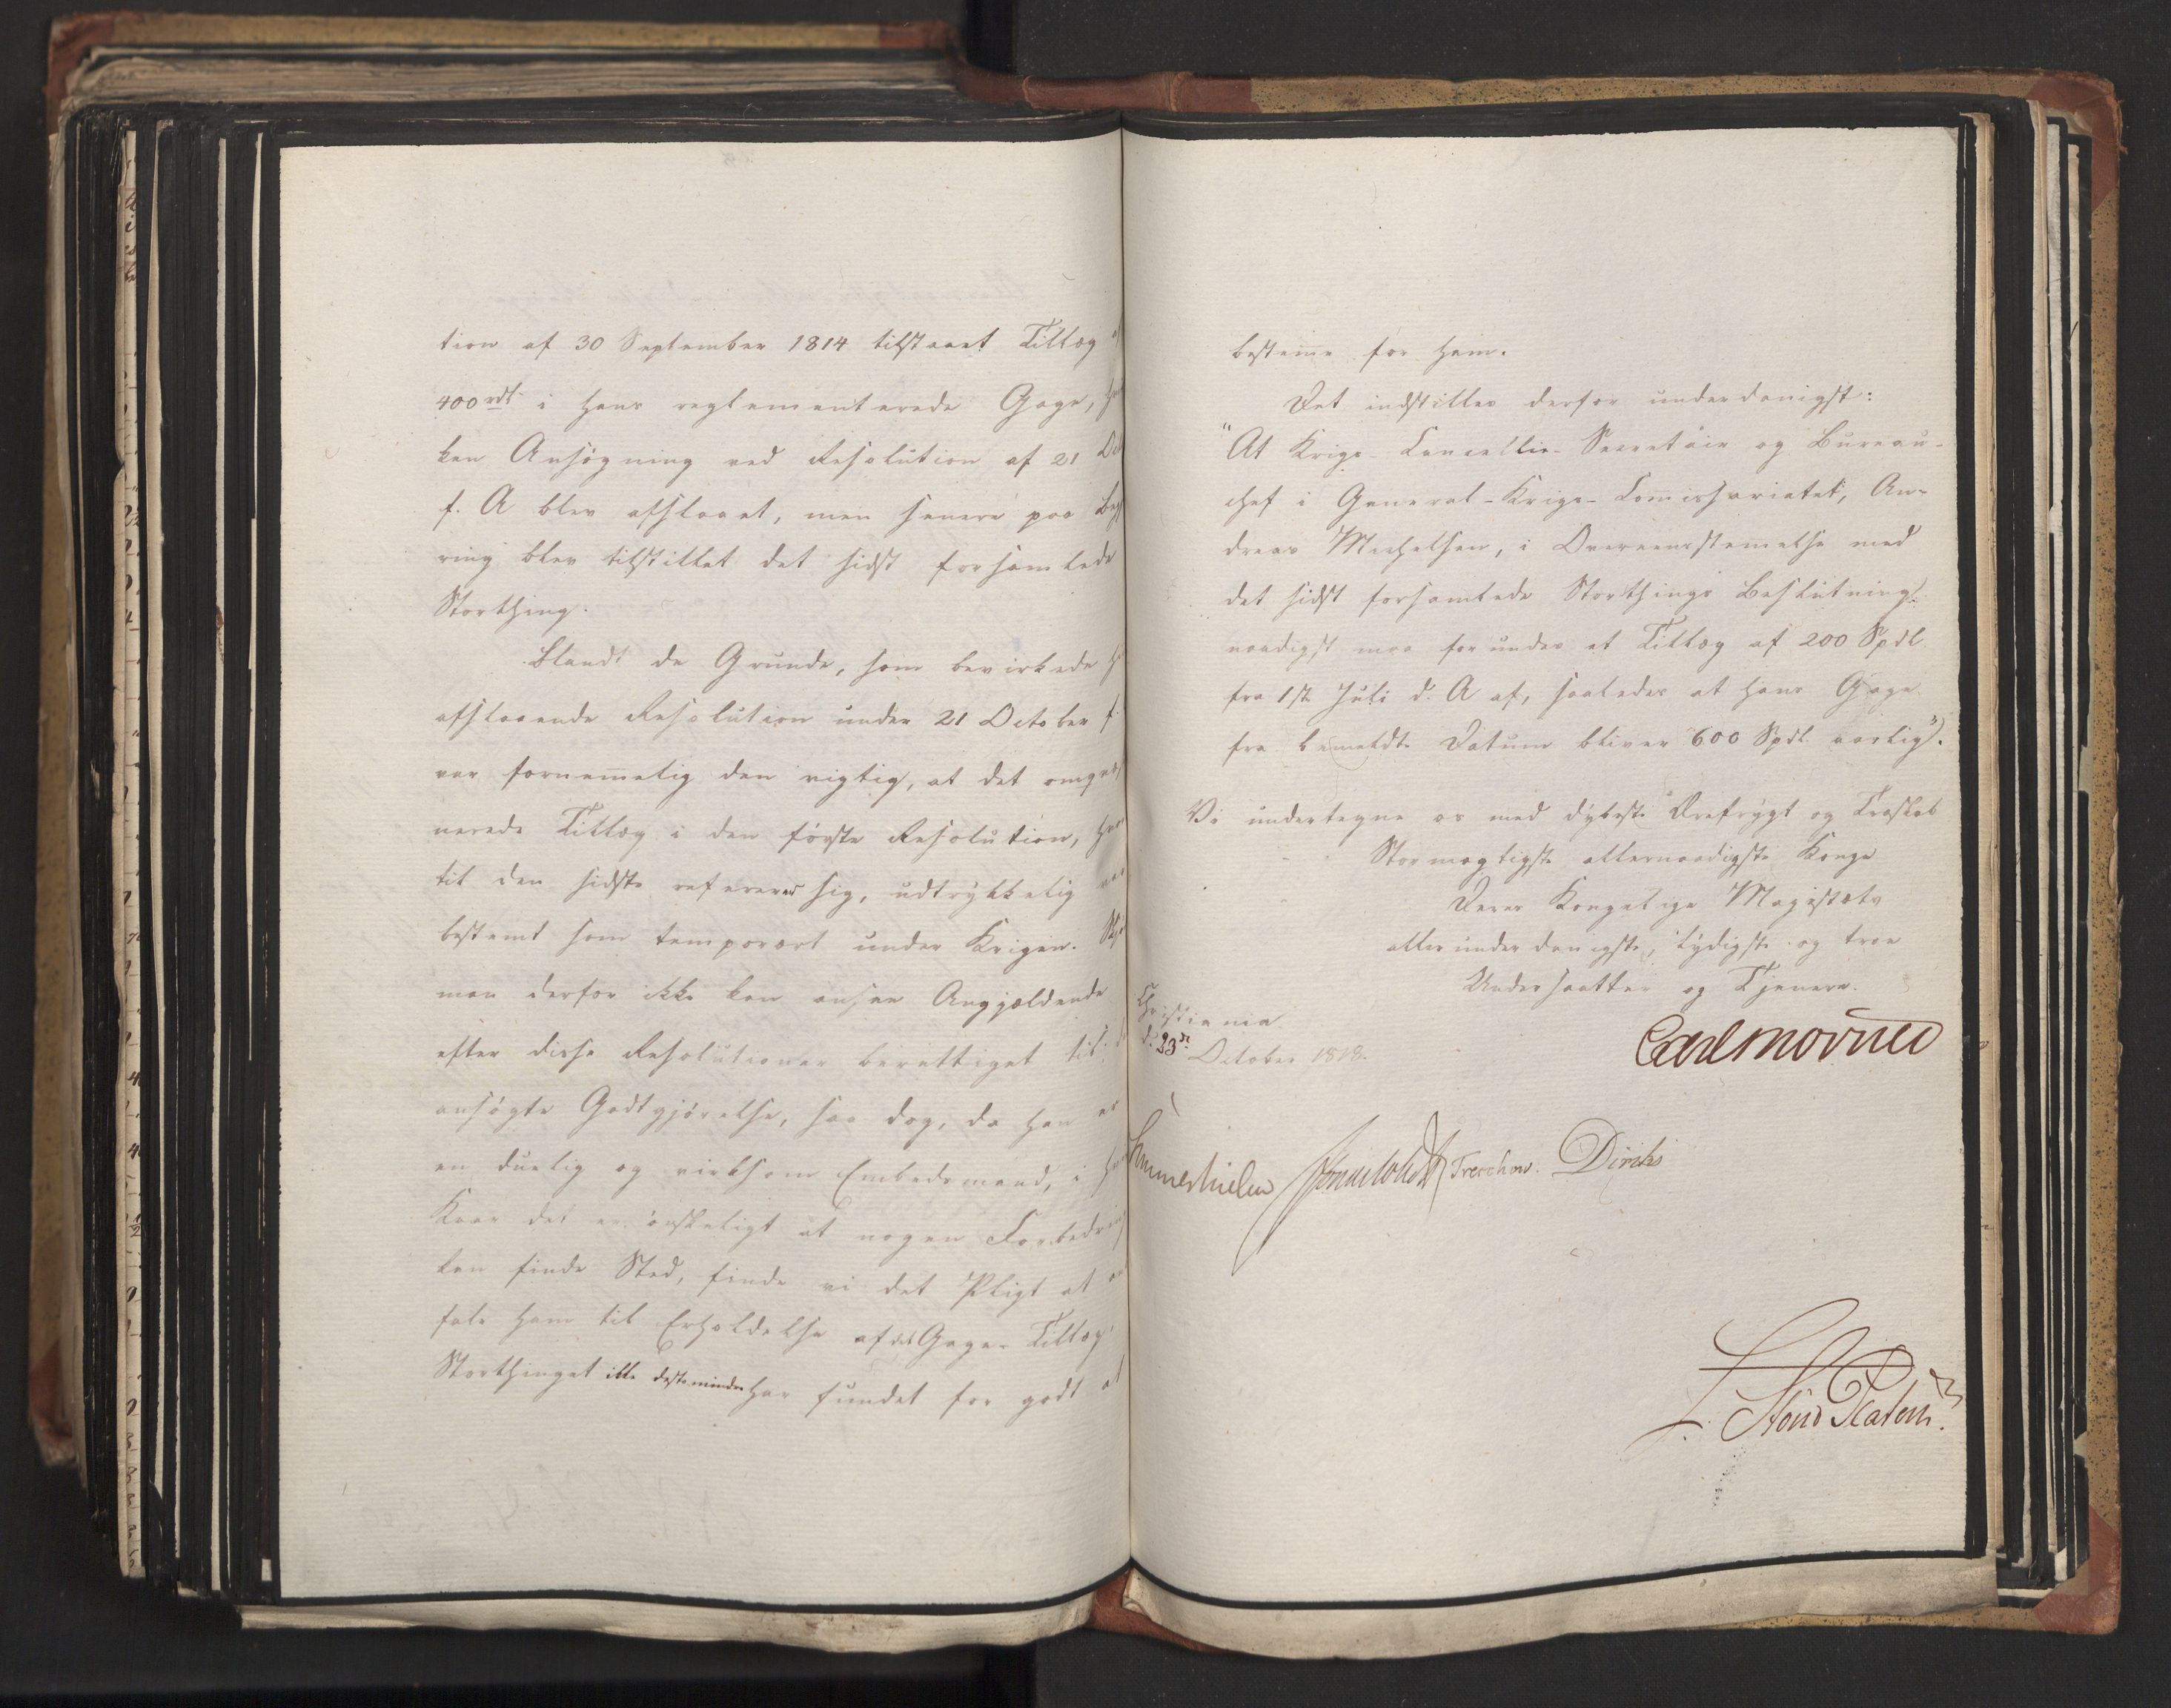 tion af 30 September 1814 tilstaaet Tillæg af
400 rdl i hans reglementerede Gage, hvil
ken Ansøgning ved Resolution af 21 Oct
f. A blev afslaaet, men senere paa Begj
ring blev tilstillet det sidst forsamlede
Storthing.
Blandt de Grunde, som bevirkede
afslaaende Resolution under 21 October f.
var fornem̄elig den vigtig, at det omqvæs
nerede Tillæg i den første Resolution, hvor
til den sidste refererer sig, udtrykkelig var
bestemt som temporært under Krigen. Skj
man derfor ikke kan ansee Angjældende
efter disse Resolutioner berettiget til d
ansøgte Godtgjørelse, saa dog, da han er
en duelig og virksom Embedsmand, i hvis
Kaar det er ønskeligt at nogen Forbedring
kan finde Sted, finde vi det Pligt at an
fale ham til Erholdelse af det Gage-Tillæg
Storthinget ikke destomindre har fundet for godt at
bestem̄e for ham.
Det indstilles derfor underdanigst:
"At Krigs-Cancellie-Secretair og Bureau-
chef i General-Krigs-Com̄issariatet, An-
dreas Michelsen, i Overeensstem̄else med
det sidst forsamlede Storthings Beslutning
naadigst maa forundes et Tillæg af 200 Spdl
fra 1st Juli d. A af, saaledes at hans Gage
fra bemeldte Datum bliver 600 Spdl. aarlig".
Vi undertegne os med dybeste Ærefrygt og Troskab
Stormægtigste allernaadigste Konge
Deres Kongelige Majestæts
allerunderdanigste, lydigste og troe
Undersaatter og Tjenere.
Christiania
d. 23de October 1818.
Carl Mörner
Sommerhielm Treschow. Diriks